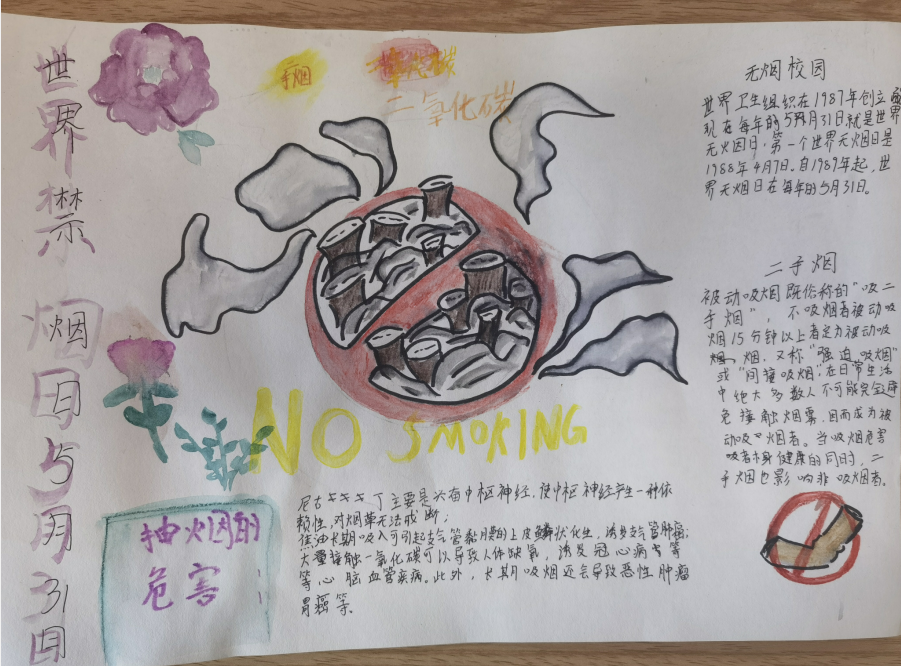 世界禁烟日5月31日
手烟
二氧化碳
NO SMOKING
无烟校园
世界卫生组织在1987年创立
现在每年的5月31日就是世界
无火因日，第一个世界无烟日是
1988年4月7日。自1989年起，世
界无烟日在每年的5月31日。
二手烟
被动吸烟既俗称的“吸二
手烟”，不吸烟者被动吸
烟15分钟以上者定为被动吸
烟，又称“强迫吸烟”
或“间接吸烟”在日常生活
中绝大多数人不可能完全避
免接触烟雾，因而成为被
动吸烟者。当吸烟危害
吸者本身健康的同时，二
手烟也影响非吸烟者。
抽烟的
危害
尼古丁主要是兴奋中枢神经，使中枢神经产生一种依
赖性，对烟草无法戒断；
焦油长期吸入可引起支气管黏膜的上皮鳞状化生，诱发支气管肿瘤；
大量接触一氧化碳可以导致人体缺氧，诱发冠心病等
等心脑血管疾病。此外，长期吸烟还会导致恶性肿瘤
胃癌等。